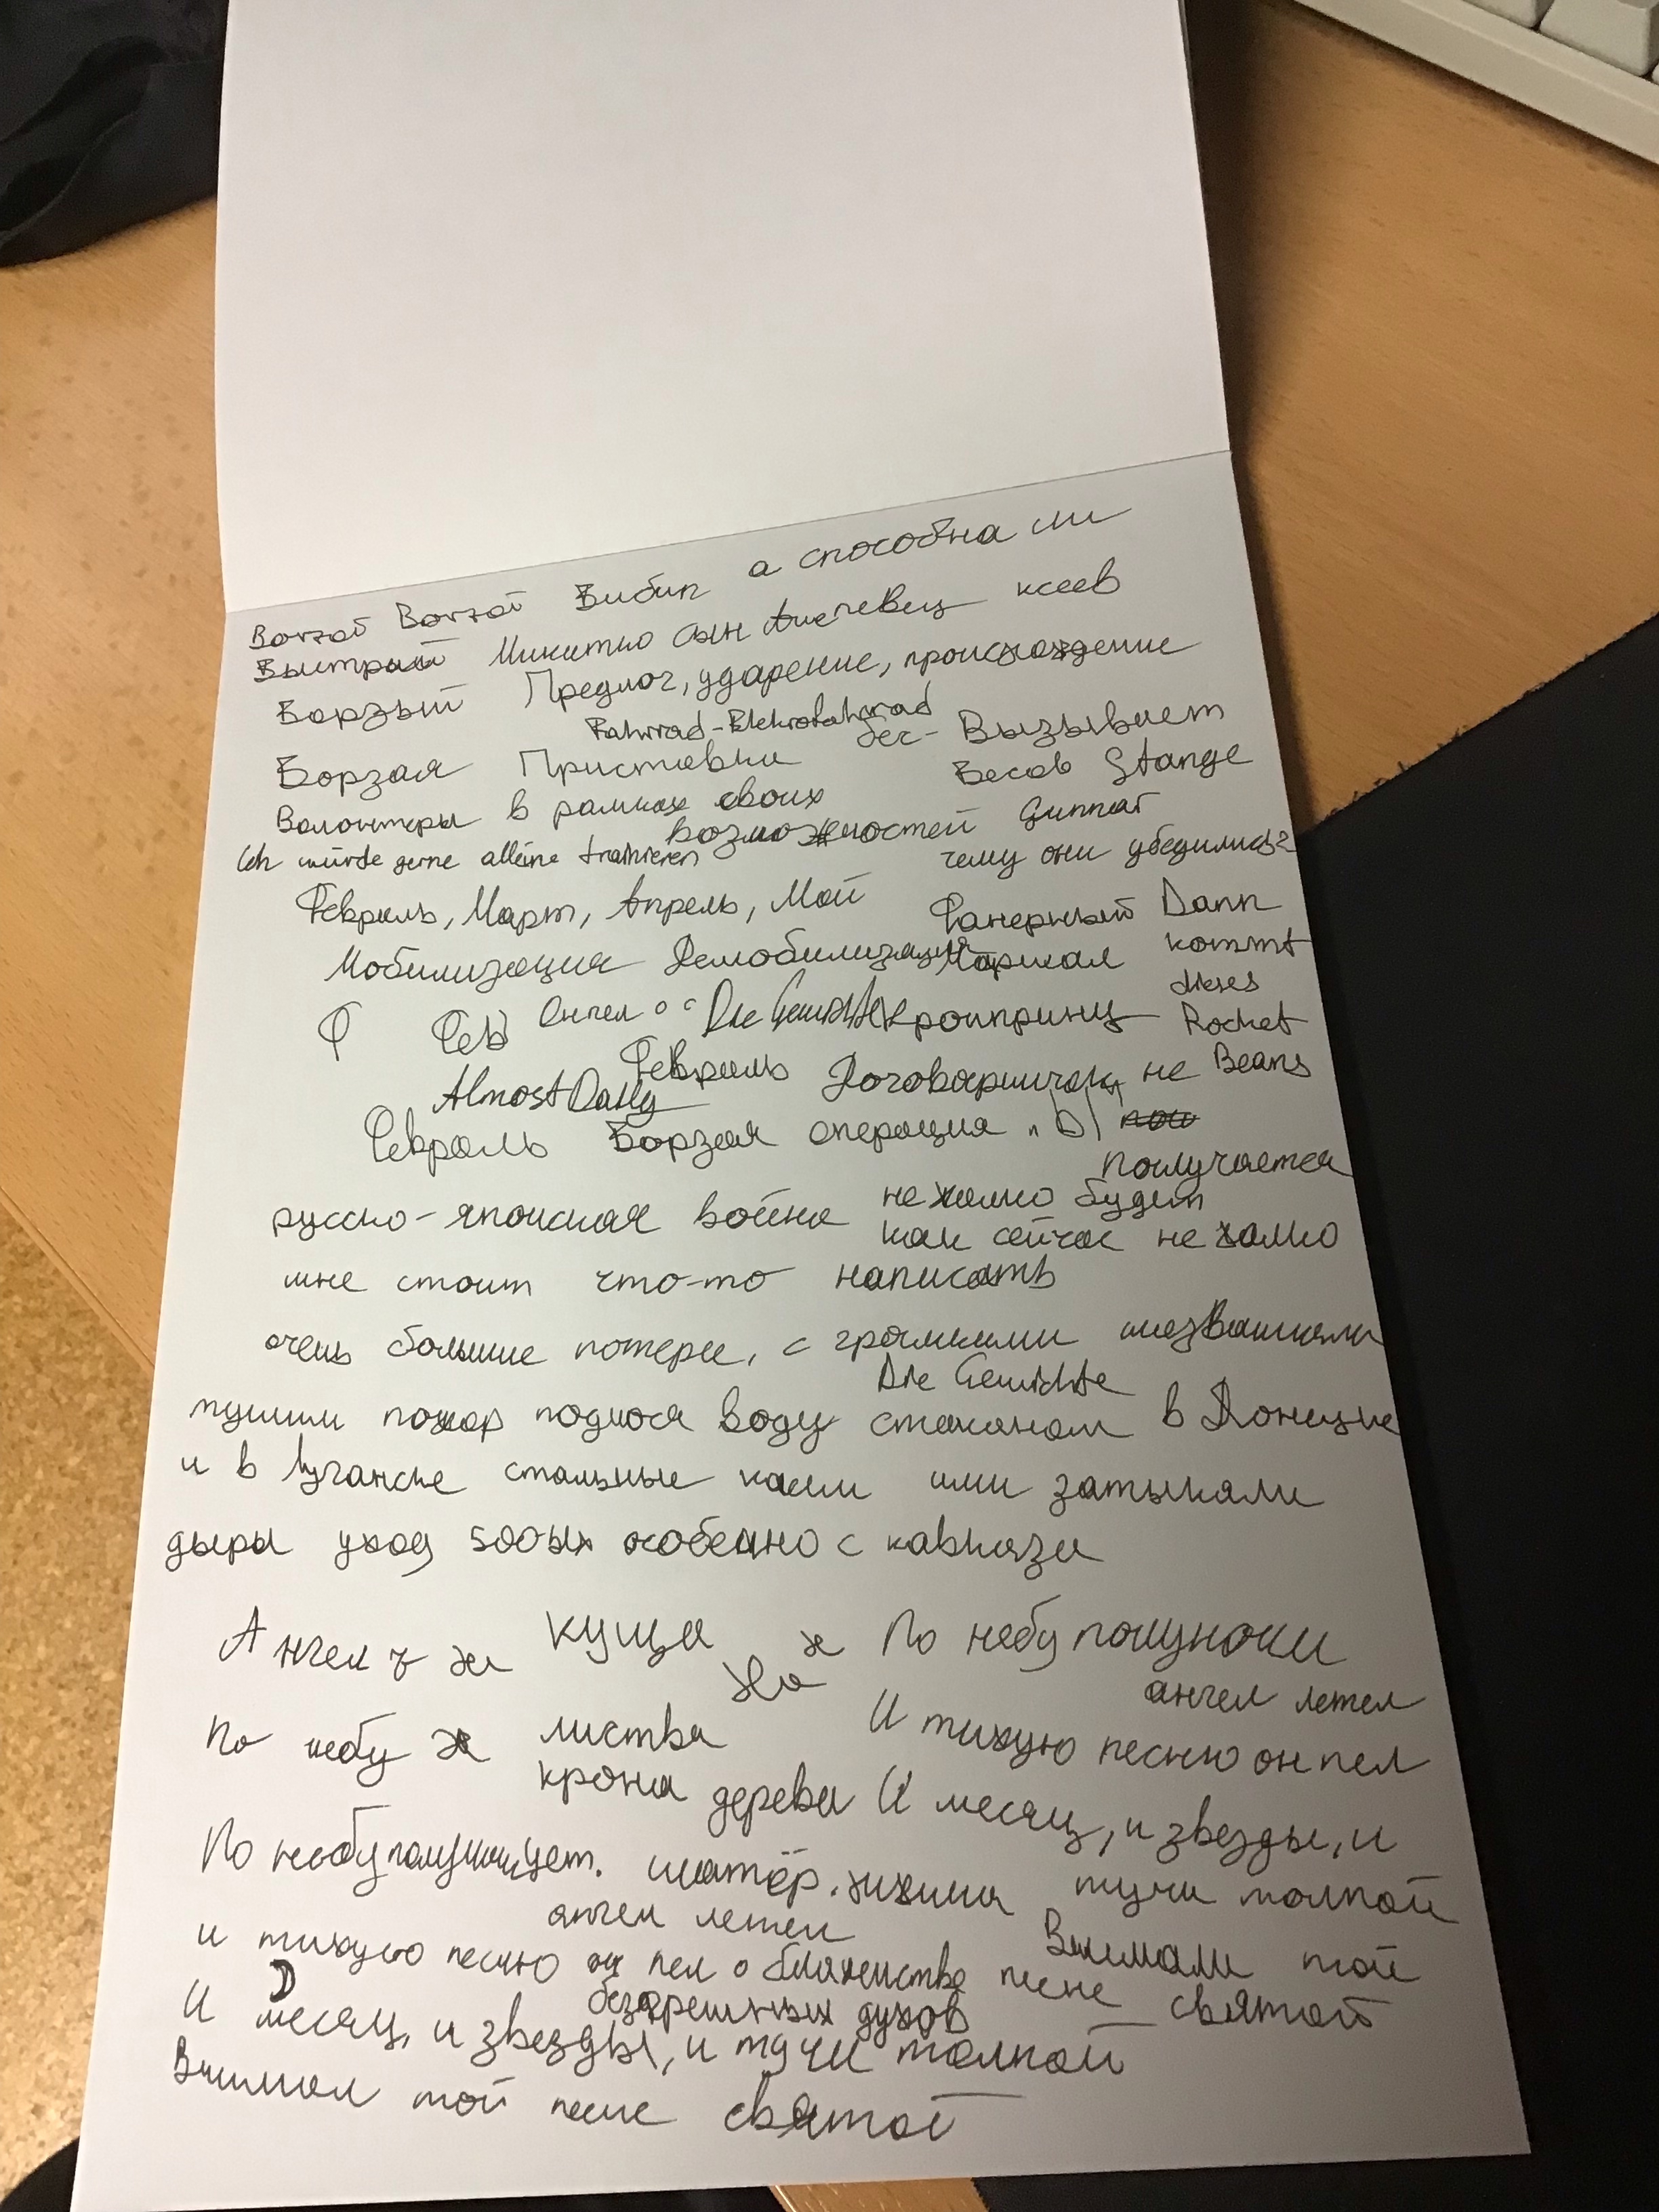 Borzoi Borzoi Бибип а способна ли
Быстрый Микитко сын ксеев
Борзый Предлог, ударение, происхождение
Fahrrad-Elektrofahrrad
Борзая Приставки бес- Вызывает
Бесов Stange
Волонтеры в рамках своих
возможностей Gunnar
Ich würde gerne alleine trainieren
чему они убедились?
Февраль, Март, Апрель, Май Фанерный Dann
Мобилизация Демобилизация Маршал kommt
dieses
Ф Фев Ангел Die Gewichte Кронпринц Rocket
Февраль Договорнячок, не Beans
Almost Daily
Февраль Борзая операция
получается
русско-японская война не жалко будет
как сейчас не жалко
мне стоит что-то написать
очень большие потери, с громкими
Die Gewichte
тушим пожар поднося воду стаканом в Донецке
и в Луганске стальные каски или затыкали
дыры уход 500ых особенно с кавказа
Ангел ъ ж куща ж По небу полуночи
Жа
ангел летел
По небу ж листва И тихую песню он пел
крона дерева И месяц, и звезды, и
По небу полуношцет. шатёр. хижина тучи толпой
ангел летел
Внимали той
и тихую песню он пел о блаженстве песне святой
безгрешных духов
И месяц, и звезды, и тучи толпой
Внимал той песне святой